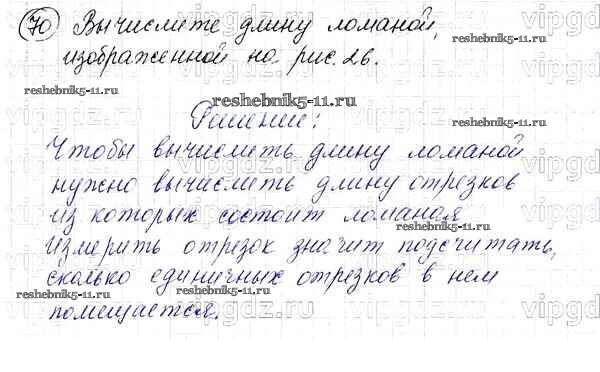 70 Вычислите длину ломаной,
изображенной на рис. 26.
reshebnik5-11.ru
reshebnik5-11.ru
reshebnik5-11.ru
Решение:
Чтобы вычислить длину ломаной
нужно вычислить длину отрезков
из которых состоит ломаная
Измерить отрезок значит подсчитать,
reshebnik5-11.ru
сколько единичных отрезков в нем
reshebnik5-11.ru
reshebnik5-11.ru
помещается.
vipgdz
vipgdz
vipgdz
vipgdz